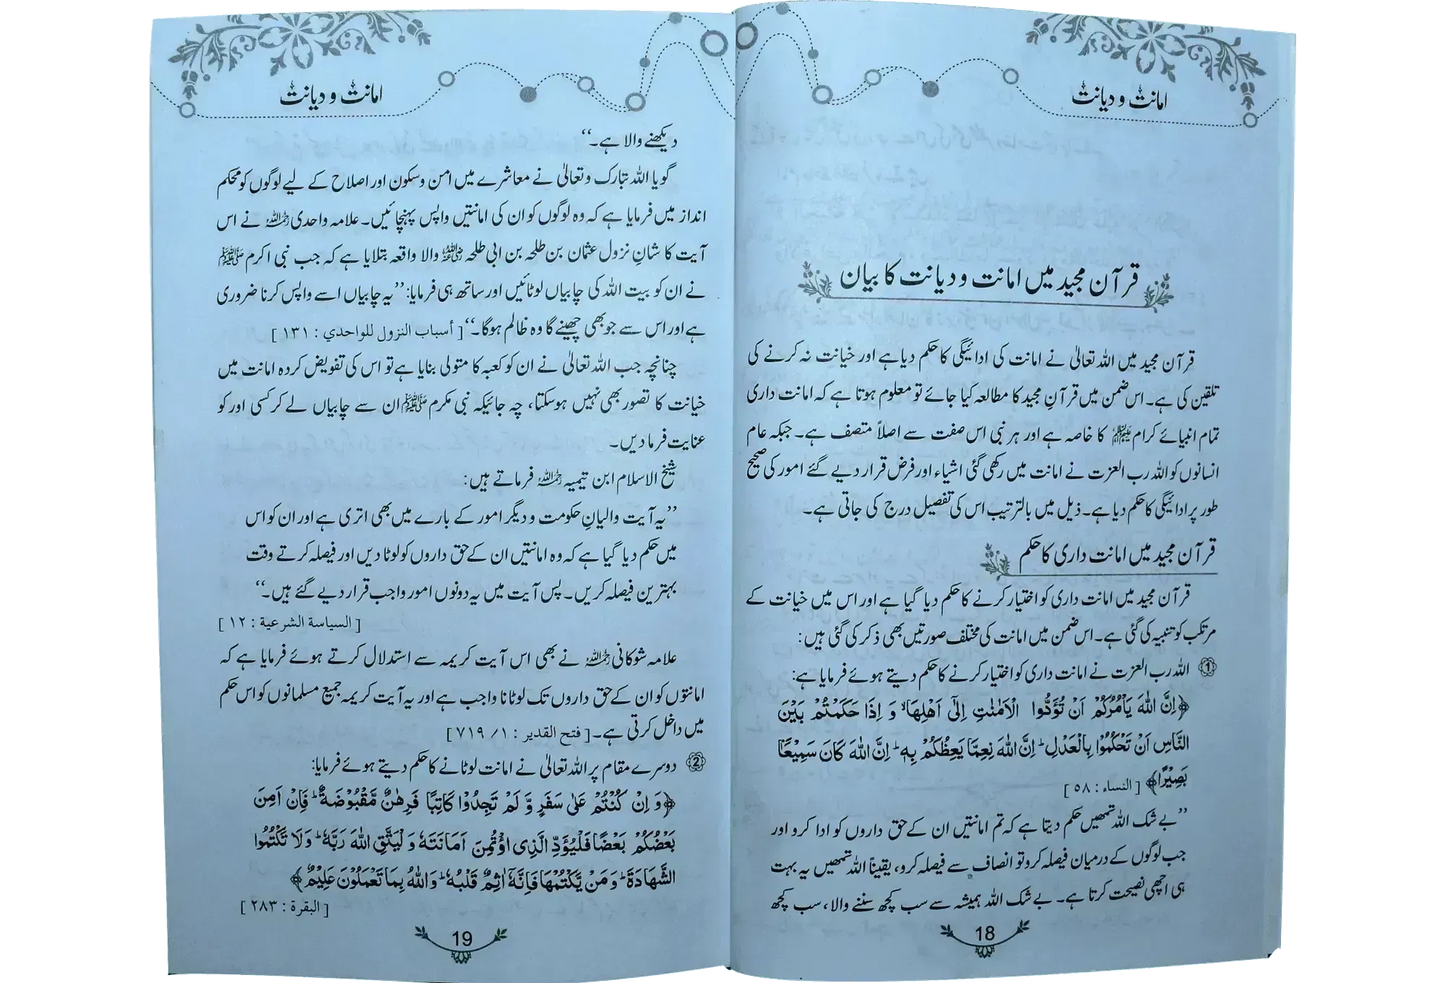 امانت و دیانت
قرآن مجید میں امانت و دیانت کا بیان
قرآن مجید میں اللہ تعالیٰ نے امانت کی ادائیگی کا حکم دیا ہے اور خیانت نہ کرنے کی
تلقین کی ہے۔ اس ضمن میں قرآنِ مجید کا مطالعہ کیا جائے تو معلوم ہوتا ہے کہ امانت داری
تمام انبیائے کرام ﷺ کا خاصہ ہے اور ہر نبی اس صفت سے اصلاً متصف ہے۔ جبکہ عام
انسانوں کو اللہ رب العزت نے امانت میں رکھی گئی اشیاء اور فرض قرار دیے گئے امور کی صحیح
طور پر ادائیگی کا حکم دیا ہے۔ ذیل میں بالترتیب اس کی تفصیل درج کی جاتی ہے۔
قرآن مجید میں امانت داری کا حکم
قرآن مجید میں امانت داری کو اختیار کرنے کا حکم دیا گیا ہے اور اس میں خیانت کے
مرتکب کو تنبیہ کی گئی ہے۔ اس ضمن میں امانت کی مختلف صورتیں بھی ذکر کی گئی ہیں:
① اللہ رب العزت نے امانت داری کو اختیار کرنے کا حکم دیتے ہوئے فرمایا ہے:
﴿اِنَّ اللّٰهَ يَاْمُرُكُمْ اَنْ تُؤَدُّوا الْاَمٰنٰتِ اِلٰٓى اَهْلِهَا ۙ وَ اِذَا حَكَمْتُمْ بَيْنَ
النَّاسِ اَنْ تَحْكُمُوْا بِالْعَدْلِ ؕ اِنَّ اللّٰهَ نِعِمَّا يَعِظُكُمْ بِهٖ ؕ اِنَّ اللّٰهَ كَانَ سَمِيْعًۢا
بَصِيْرًا﴾ [النساء : ٥٨]
’’بے شک اللہ تمھیں حکم دیتا ہے کہ تم امانتیں ان کے حق داروں کو ادا کرو اور
جب لوگوں کے درمیان فیصلہ کرو تو انصاف سے فیصلہ کرو، یقیناً اللہ تمھیں یہ بہت
ہی اچھی نصیحت کرتا ہے۔ بے شک اللہ ہمیشہ سے سب کچھ سننے والا، سب کچھ
18
امانت و دیانت
دیکھنے والا ہے۔‘‘
گویا اللہ تبارک و تعالیٰ نے معاشرے میں امن و سکون اور اصلاح کے لیے لوگوں کو محکم
انداز میں فرمایا ہے کہ وہ لوگوں کو ان کی امانتیں واپس پہنچائیں۔ علامہ واحدی رحمہ اللہ نے اس
آیت کا شانِ نزول عثمان بن طلحہ بن ابی طلحہ رضی اللہ عنہ والا واقعہ بتلایا ہے کہ جب نبی اکرم ﷺ
نے ان کو بیت اللہ کی چابیاں لوٹائیں اور ساتھ ہی فرمایا: ’’یہ چابیاں اسے واپس کرنا ضروری
ہے اور اس سے جو بھی چھینے گا وہ ظالم ہوگا۔‘‘ [أسباب النزول للواحدي : ١٣١]
چنانچہ جب اللہ تعالیٰ نے ان کو کعبہ کا متولی بنایا ہے تو اس کی تفویض کردہ امانت میں
خیانت کا تصور بھی نہیں ہوسکتا، چہ جائیکہ نبی مکرم ﷺ ان سے چابیاں لے کر کسی اور کو
عنایت فرما دیں۔
شیخ الاسلام ابن تیمیہ رحمہ اللہ فرماتے ہیں:
’’یہ آیت والیانِ حکومت و دیگر امور کے بارے میں بھی اتری ہے اور ان کو اس
میں حکم دیا گیا ہے کہ وہ امانتیں ان کے حق داروں کو لوٹا دیں اور فیصلہ کرتے وقت
بہترین فیصلہ کریں۔ پس آیت میں یہ دونوں امور واجب قرار دیے گئے ہیں۔‘‘
[السياسة الشرعية : ١٢]
علامہ شوکانی رحمہ اللہ نے بھی اس آیت کریمہ سے استدلال کرتے ہوئے فرمایا ہے کہ
امانتوں کو ان کے حق داروں تک لوٹانا واجب ہے اور یہ آیت کریمہ جمیع مسلمانوں کو اس حکم
میں داخل کرتی ہے۔ [فتح القدير : ١/ ٧١٩]
② دوسرے مقام پر اللہ تعالیٰ نے امانت لوٹانے کا حکم دیتے ہوئے فرمایا:
﴿وَ اِنْ كُنْتُمْ عَلٰى سَفَرٍ وَّ لَمْ تَجِدُوْا كَاتِبًا فَرِهٰنٌ مَّقْبُوْضَةٌ ؕ فَاِنْ اَمِنَ
بَعْضُكُمْ بَعْضًا فَلْيُؤَدِّ الَّذِى اؤْتُمِنَ اَمَانَتَهٗ وَ لْيَتَّقِ اللّٰهَ رَبَّهٗ ؕ وَ لَا تَكْتُمُوا
الشَّهَادَةَ ؕ وَ مَنْ يَّكْتُمْهَا فَاِنَّهٗٓ اٰثِمٌ قَلْبُهٗ ؕ وَ اللّٰهُ بِمَا تَعْمَلُوْنَ عَلِيْمٌ﴾
[البقرة : ٢٨٣]
19